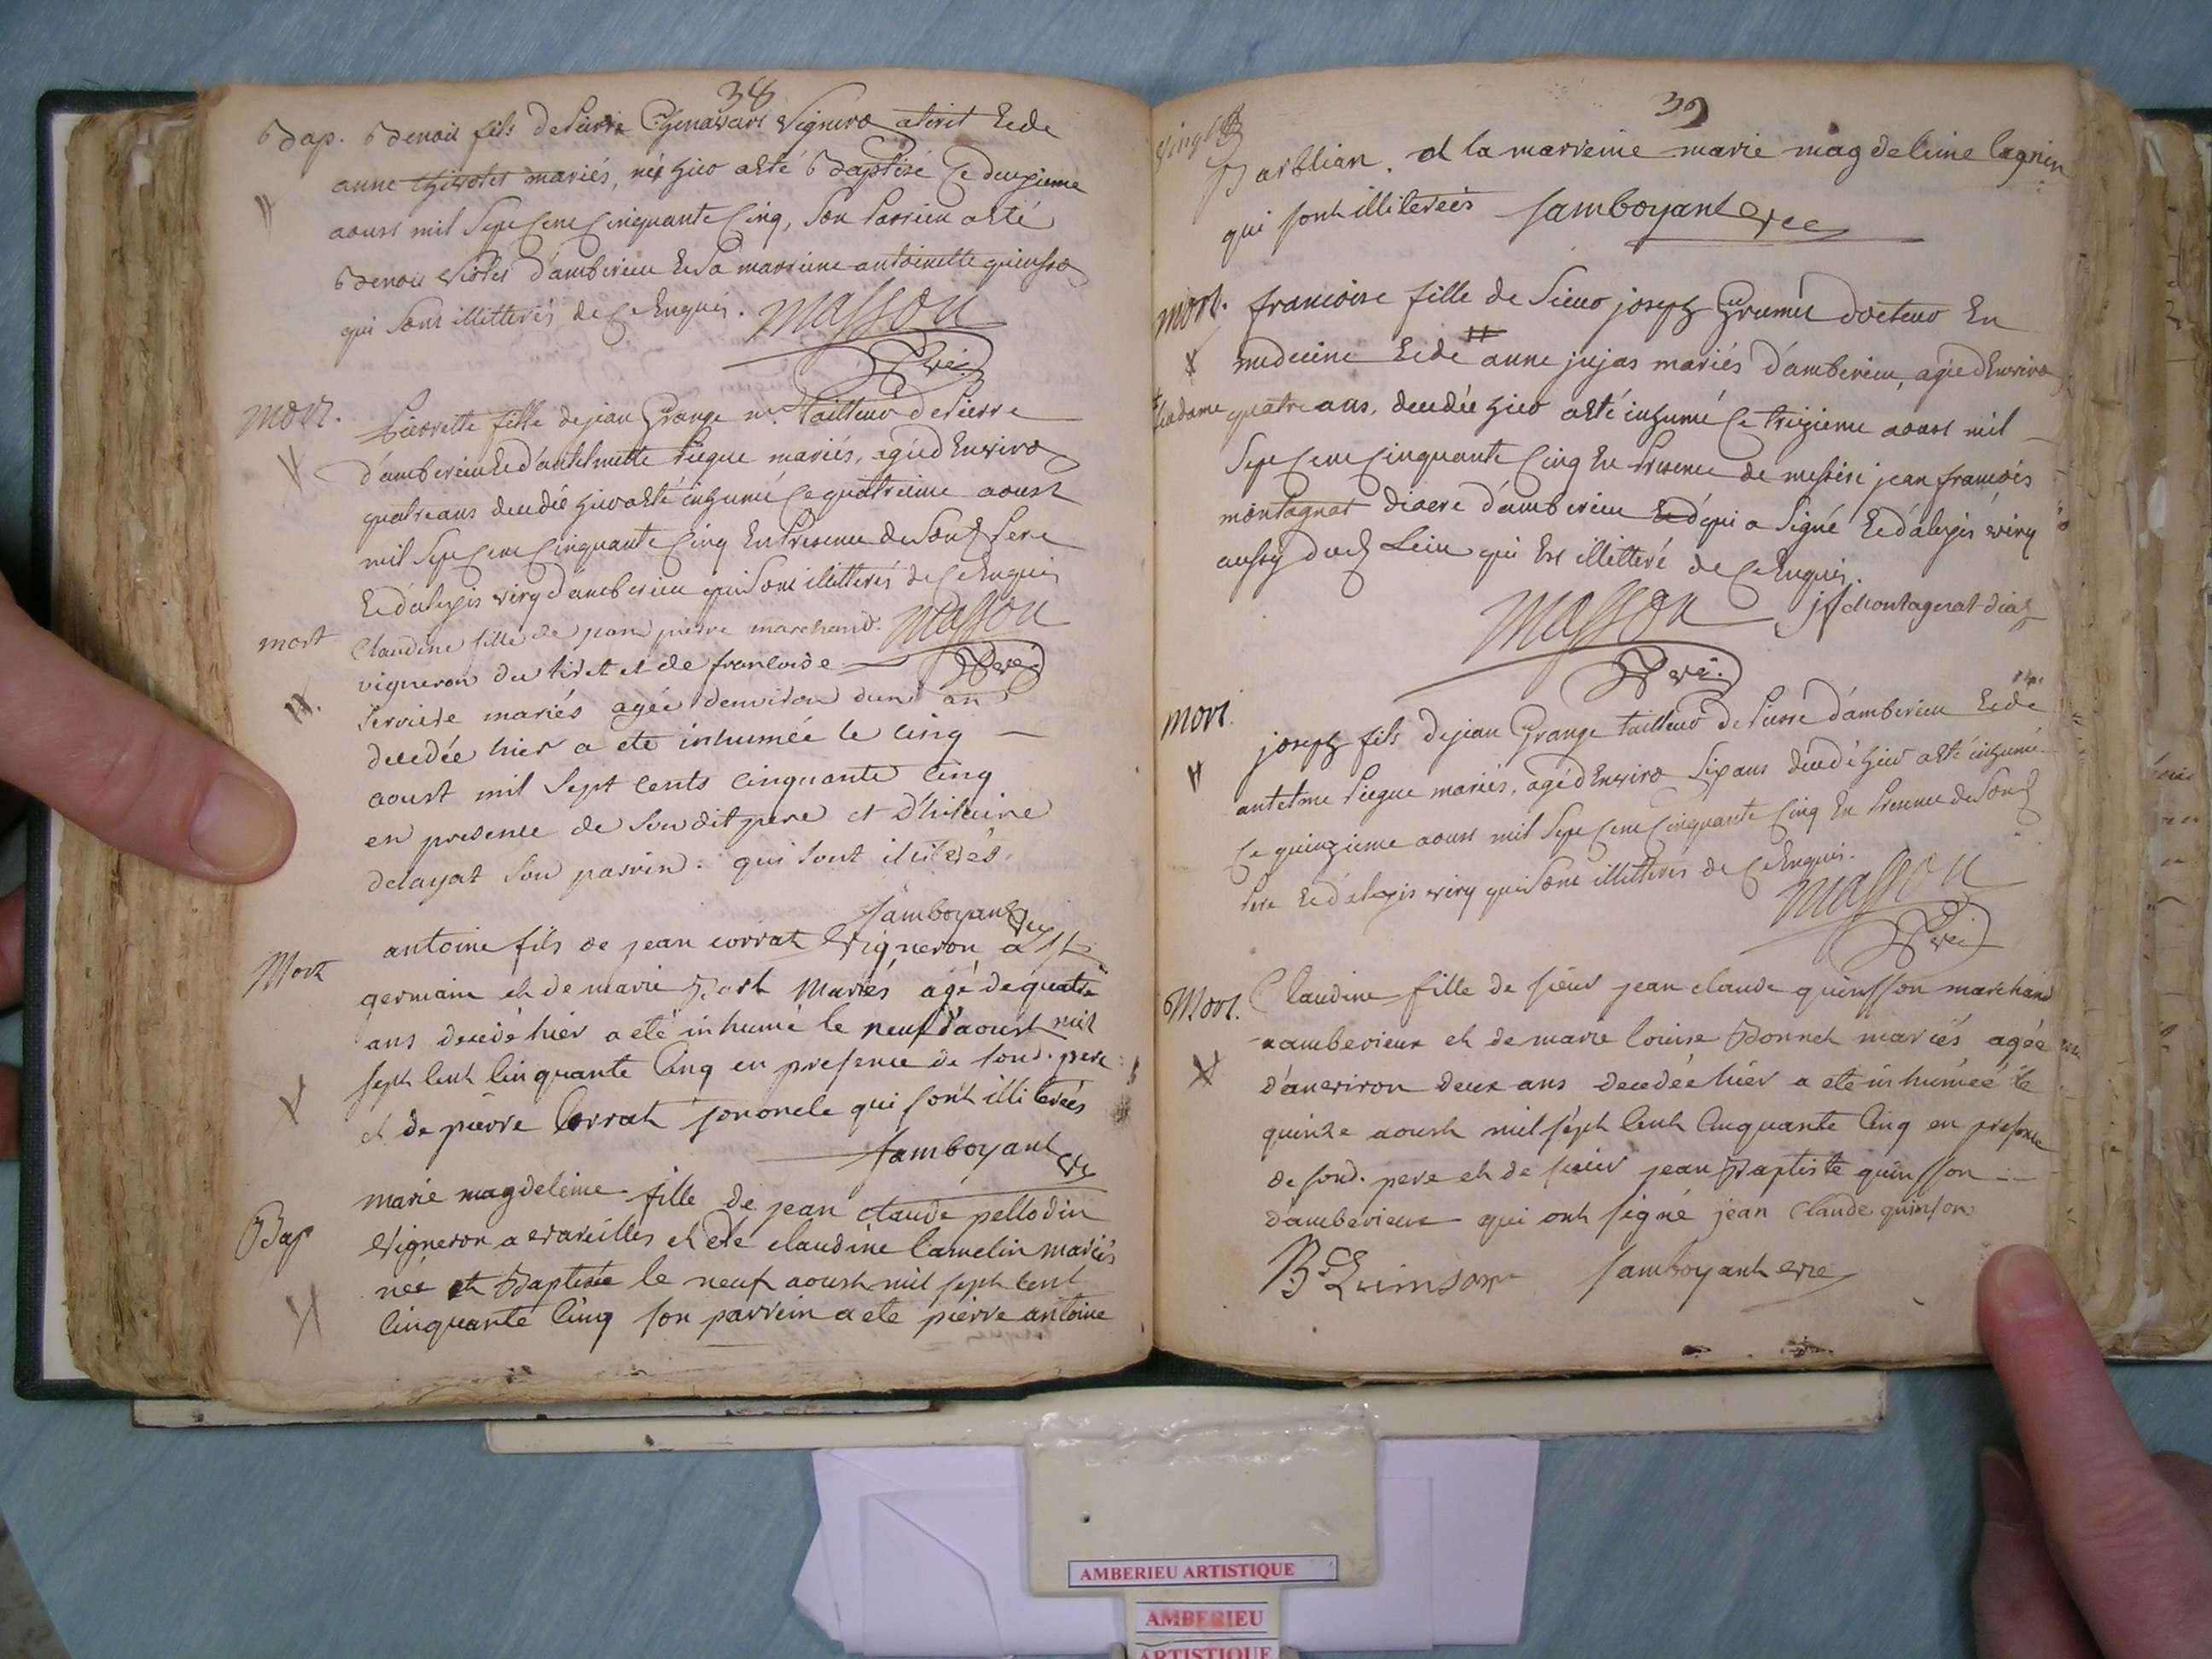 38
Bap. Benoit fils de Pierre Chenavart Vigneron atiret Et de
anne mariés, né hier aeté Baptisé Ce deuxieme
aoust mil Sept Cent Cinquante Cinq, Son Parrien aeté
Benoit d'amberieu Et Sa marrienne antoinette quinsson
qui Sont illitterés de Ce Enquis. Masson
Vire
mort. Pierrette fille de jean Grange me tailleur de Pierre
d'amberieu Et d'antelmette Piegue mariés, agéed'Environ
quatre ans decedée hier aeté inhumé Ce quatrieme aoust
mil Sept Cent Cinquante Cinq En Presence de Sond Pere
Et d'alexis viry d'amberieu qui Sont illitterés de Ce Enquis
Masson
mort Claudine fille de jean pierre marchand
vigneron du tiret et de francoise
mariés agée denviron dun an
decedée hier a eté inhumée le cinq
aoust mil Sept cents cinquante cinq
en presence de Son dit pere et d'hilaire
delayat Son parrin. qui Sont iliterés.
Samboyant vire
Mort antoine fils de jean corrat Vigneron a St
germain et de marie mariés agé de quatre
ans decedé hier a eté inhumé le neuf d'aoust mil
sept cent cinquante Cinq en presence de sond. pere
et de pierre Corrat son oncle qui sont illiterées
Samboyant vire
Bap marie magdeleine fille de jean claude pellodin
Vigneron a vareilles et de claudine lamelin mariés
née et Baptisée le neuf aoust mil sept cent
cinquante Cinq son parrein a eté pierre antoine
39
Barbllian. et la marreine marie magdeleine lagnin
qui sont illiterées Samboyant vire
mort. francoise fille de Sieur joseph Grumet docteur En
medecine Et de # anne jujas mariés d'amberieu, agée d'Environ
# madame quatre ans, decedée hier aeté inhumé Ce treizieme aoust mil
Sept Cent Cinquante Cinq En Presence de messire jean françois
montagnat diacre d'amberieu Et d qui a Signé Et d'alexis viry
aussy dud Lieu qui Est illitteré de Ce Enquis.
Masson jf Montagnat diac
Vire.
mort. joseph fils de jean Grange tailleur de Pierre d'amberieu Et de
antelme Piegue mariés, agé d'Environ Six ans decedé hier aeté inhumé
Ce quinzieme aoust mil Sept Cent Cinquante Cinq En Presence de Sond
Pere Et d'alexis viry qui Sont illitterés de Ce Enquis.
Masson
Vire
Mort. Claudine fille de sieur jean claude quinsson marchand
a amberieux et de marie louise Bonnet mariés agée
d'anviron deux ans decedée hier a eté inhumée le
quinze aoust mil sept cent Cinquante Cinq en presence
de sond. pere et de sieur jean Baptiste quinsson
d'amberieux qui ont signé jean Claude quinson
B. Quinson Samboyant vire
AMBERIEU ARTISTIQUE
AMBERIEU
ARTISTIQUE